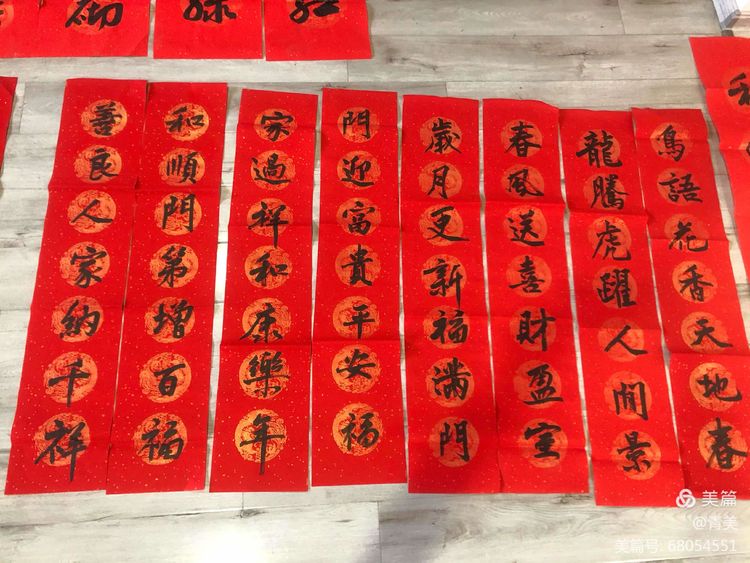 鳥語花香天地春
龍騰虎躍人間景
春風送喜財盈室
歲月更新福滿門
門迎富貴平安福
家過祥和康樂年
和順門第增百福
善良人家納千祥
美篇
@青美
美篇号: 68054551